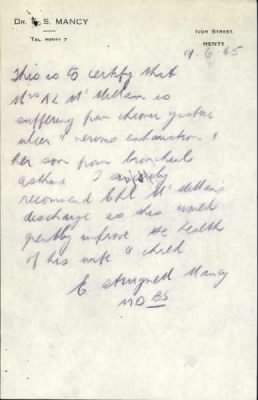 DR. E. S. MANCY
TEL. HENTY 7
IVOR STREET,
HENTY
9.6.65
This is to certify that
Mrs R L McMellan is
suffering from chronic gastric
ulcer & nervous exhaustion &
her son from bronchial
asthma. I
recommend Cpl McMellans
discharge as this would
greatly improve the health
of his wife & child
E Strugnell Mancy
MD BS